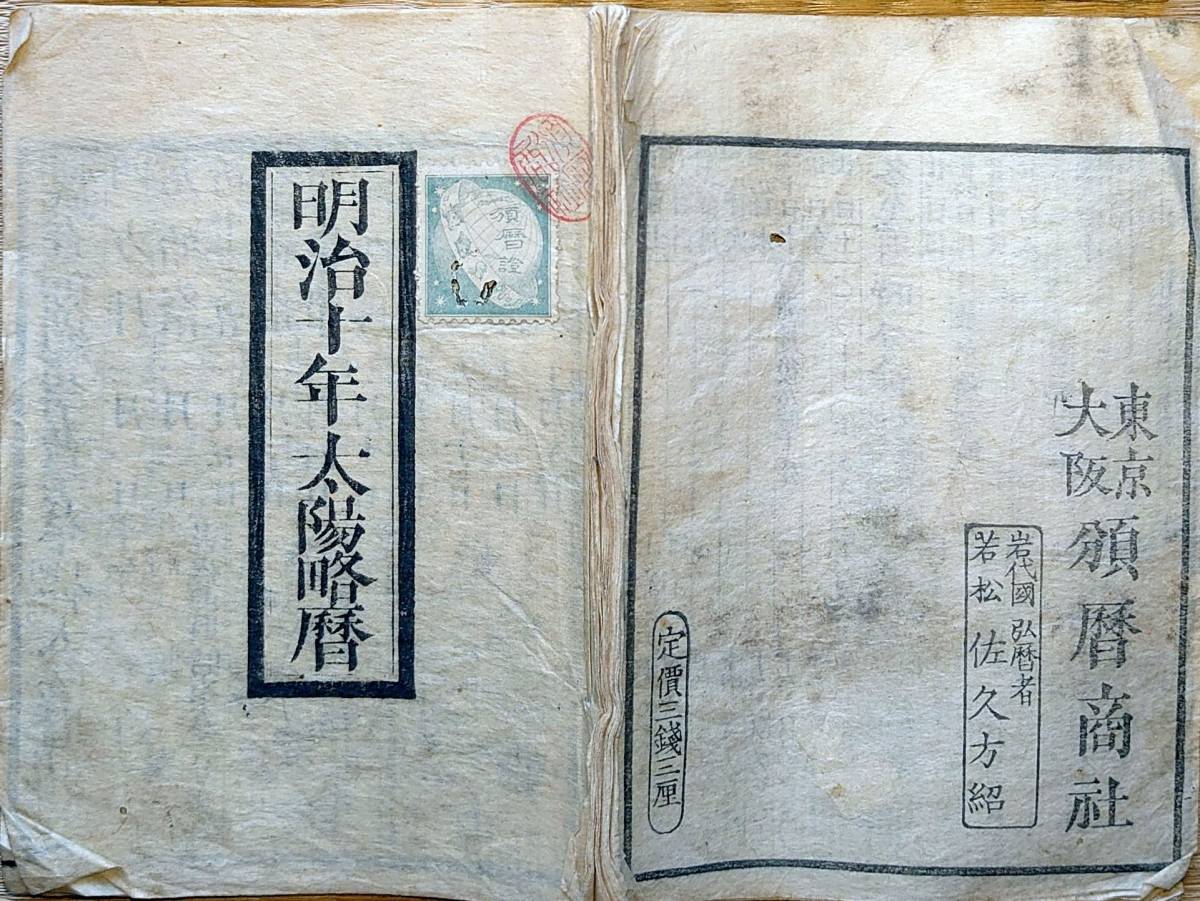 明治十年太陽略暦
頒暦證
東京
大阪
頒暦商社
岩代國 弘暦者
若松 佐久方紹
定價三錢三厘